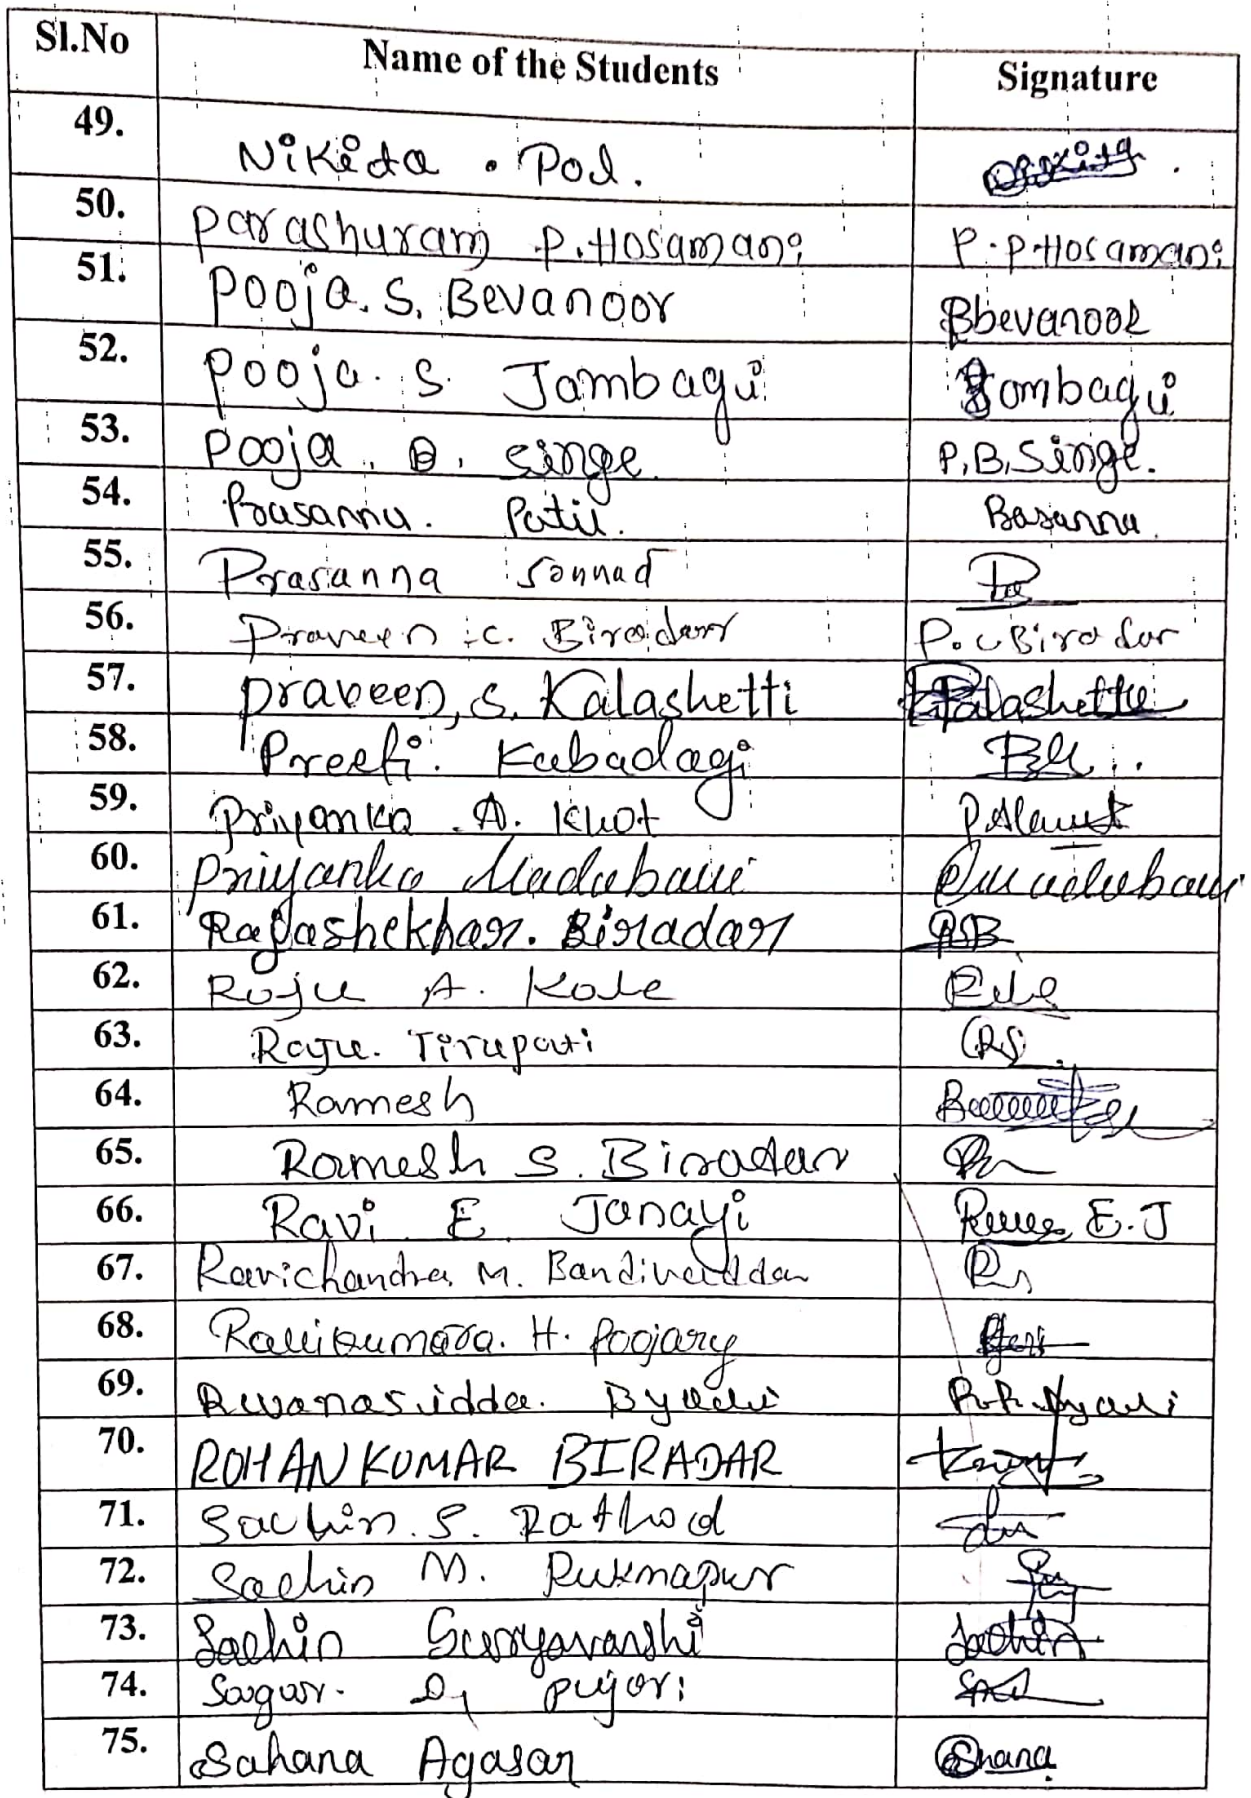 Sl.No Name of the Students Signature
49. Nikita . Pol.
50. Parashuram P. Hosamani P. P. Hosamani
51. Pooja. S. Bevanoor Bbevanoor
52. Pooja. S. Jambagi Jambagi
53. Pooja. B. Singe P.B. Singe.
54. Prasanna. Patil. Basanna
55. Prasanna Sonnad
56. Praveen .c. Biradar P. c Biradar
57. Praveen, S. Kalashetti Kalashetti
58. Preeti. Kabadagi
59. Priyanka .A. Khot
60. Priyanka Madabavi
61. Rajashekhar. Biradar RSB
62. Raju A. Kole
63. Raju. Tirupati RS
64. Ramesh
65. Ramesh S. Biradar
66. Ravi E Janagi E.J
67. Ravichandra M. Bandivaddar
68. Ravikumara. H. Poojary
69. Revanasidda. Byali
70. ROHANKUMAR BIRADAR
71. Sachin. S. Rathod
72. Sachin M. Rukmapur
73. Sachin Suryavanshi Sachin
74. Sagar. D, pujari
75. Sahana Agasar Shana